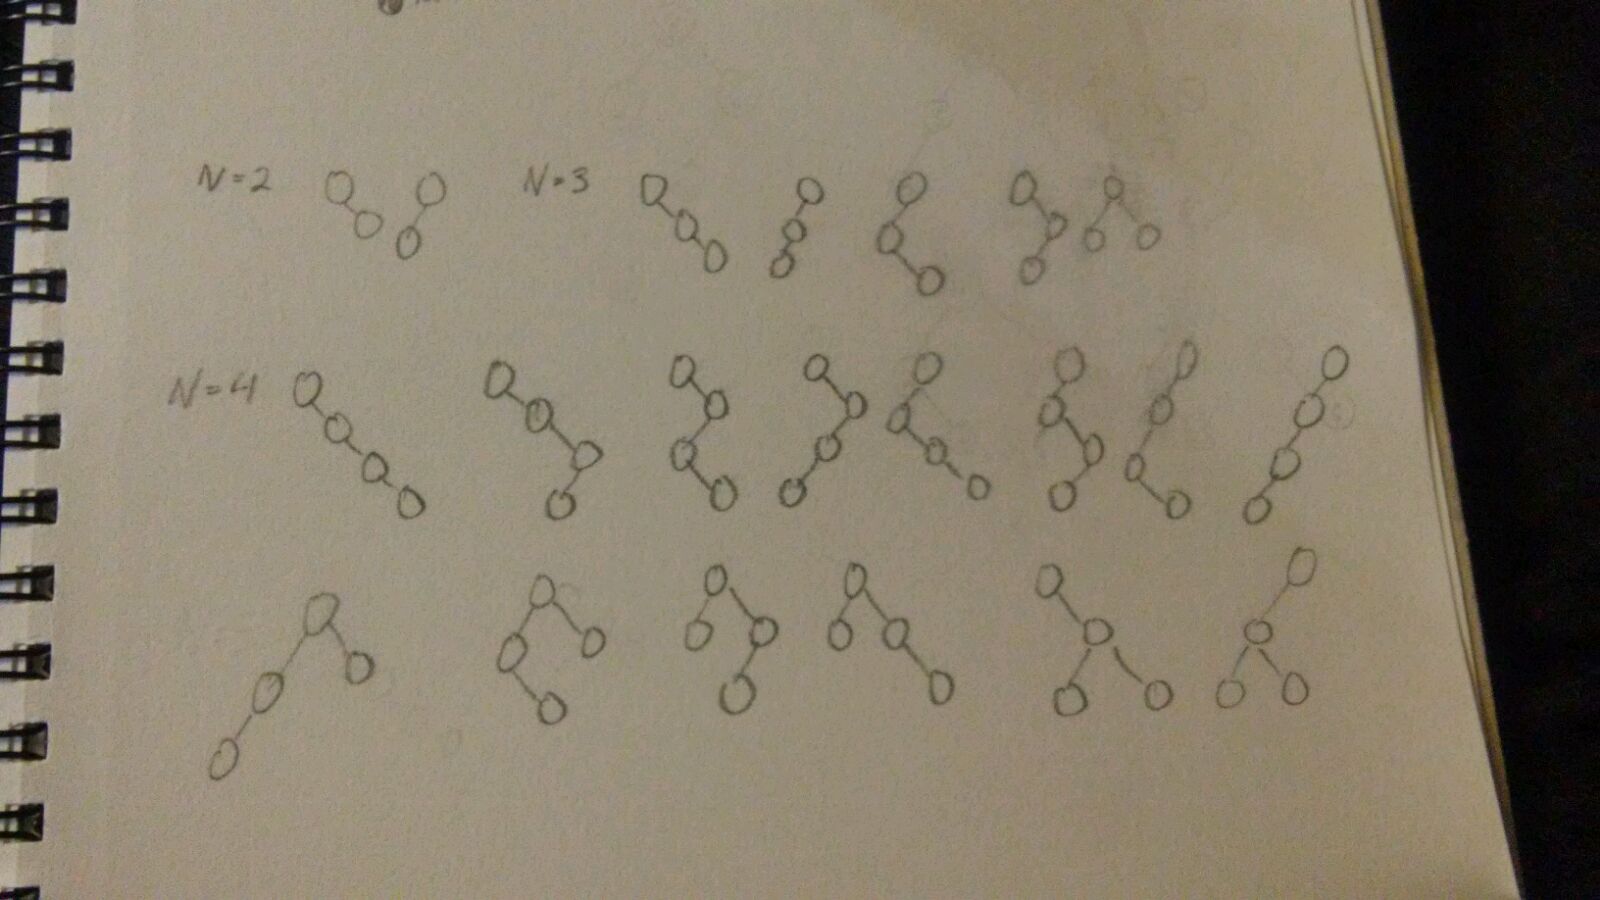 N=2 N=3
N=4